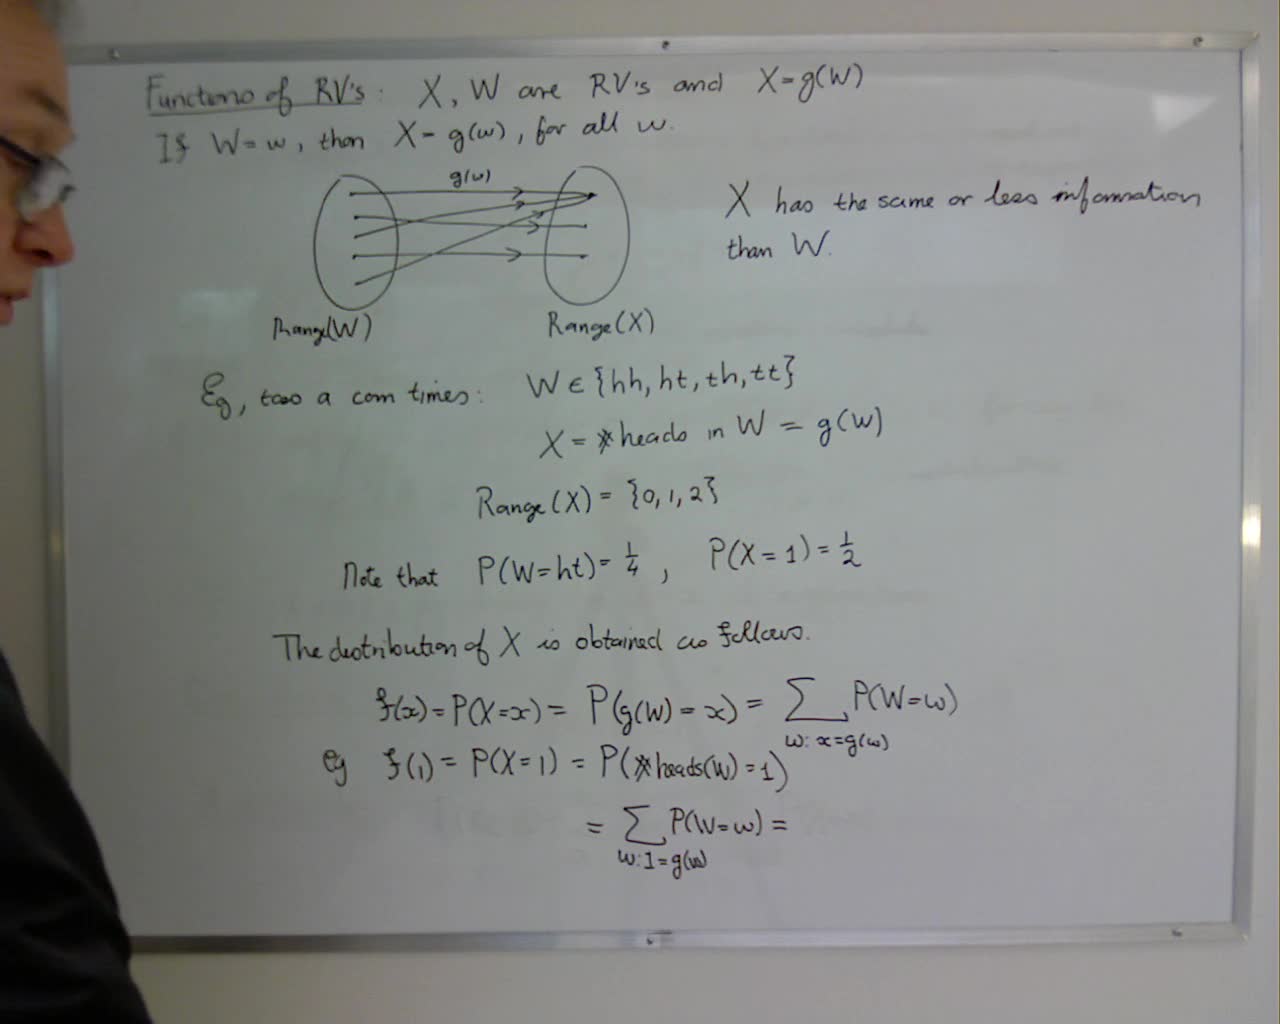 Functions of RV's: X, W are RV's and X=g(W)
If W=w, then X=g(w), for all w.
g(w)
X has the same or less information
than W.
Range(W)
Range(X)
Eg, toss a coin times: W ∈ {hh, ht, th, tt}
X = # heads in W = g(W)
Range(X) = {0, 1, 2}
Note that P(W=ht)=1/4, P(X=1)=1/2
The distribution of X is obtained as follows.
f(x)=P(X=x)= P(g(W)=x) = ∑ P(W=w)
w: x=g(w)
eg f(1) = P(X=1) = P(#heads(W)=1)
= ∑ P(W=w) =
w:1=g(w)